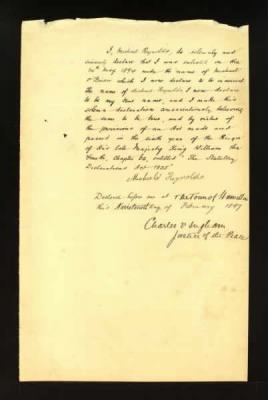 I, Michael Reynolds, do solemnly and
sincerely declare that I was enlisted on the
May 1894 under the name of Michael
O'Brien which I now declare to be assumed
the name of Michael Reynolds I now declare
to be my true name, and I make this
solemn declaration conscientiously believing
the same to be true, and by virtue of
the provisions of an Act made and
passed in the sixth year of the Reign
of His late Majesty King William the
Fourth, Chapter 62, entitled "The Statutory
Declarations Act 1835"
Michael Reynolds
Declared before me at the Town of Hamilton
this day of February 1897
Charles
Justice of the Peace